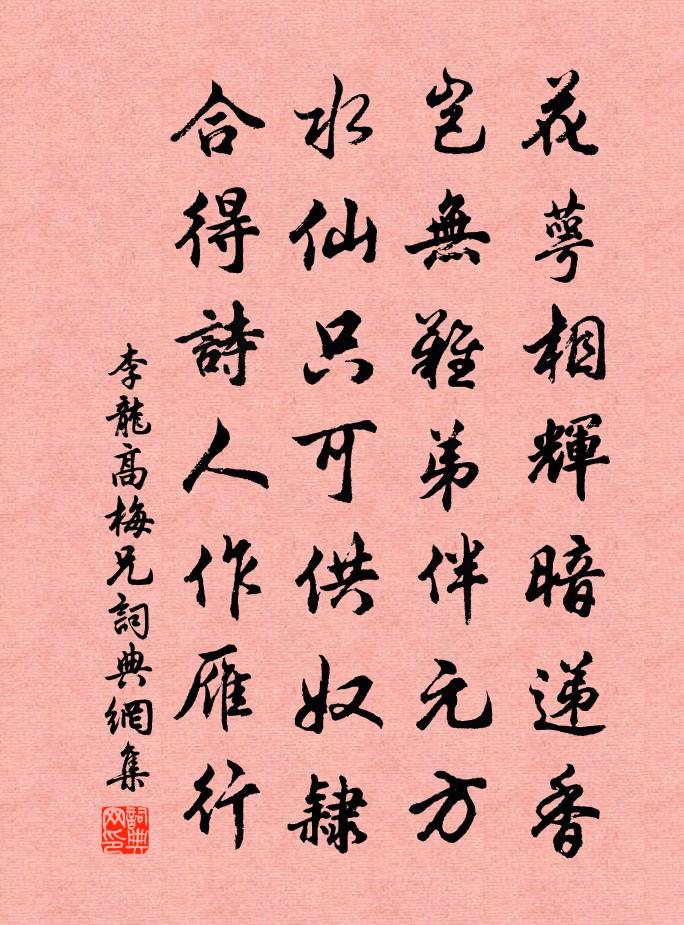 花萼相輝暗递香
岂無難弟伴元方
水仙只可供奴隸
合得詩人作雁行
李龍高梅兄詞典網集
詞典网印